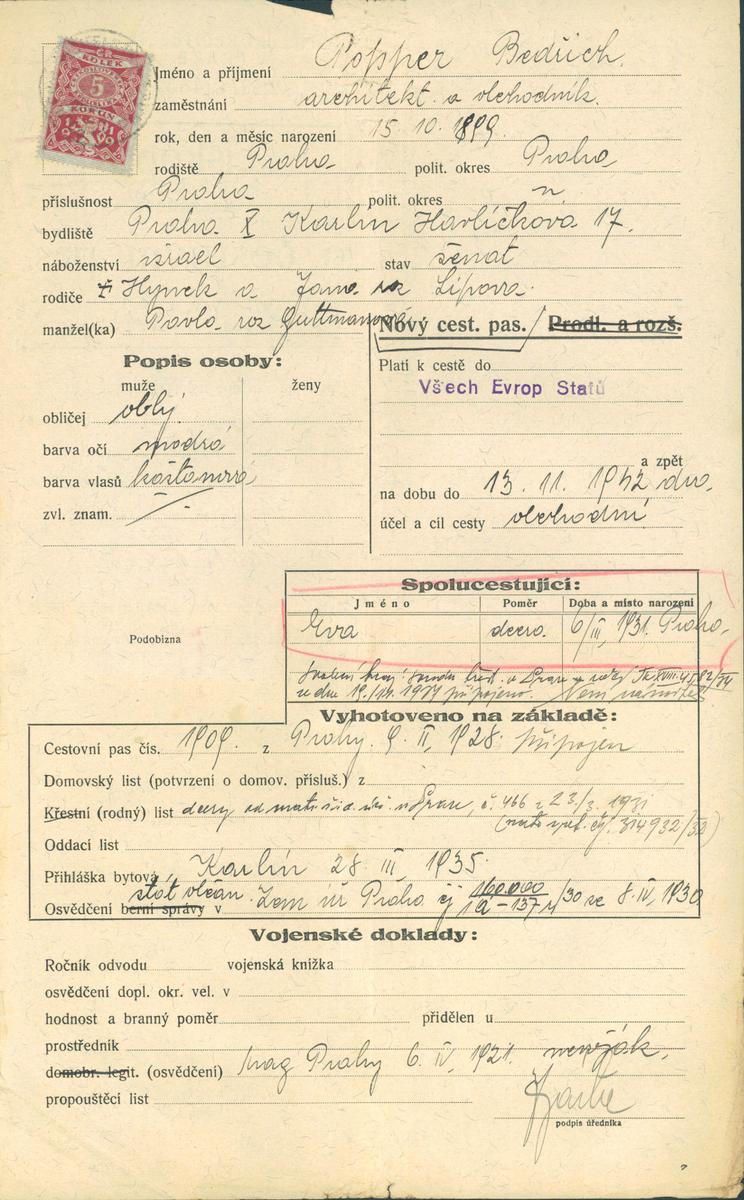 ČR.
KOLEK
5
KORUN
Jméno a příjmení Popper Bedřich.
zaměstnání architekt a obchodník.
rok, den a měsíc narození 15 10. 1899.
rodiště Praha polit. okres Praha
příslušnost Praha polit. okres "
bydliště Praha X Karlín Havlíčkova 17.
náboženství israel stav ženat
rodiče Hynek a Jana roz Lipova.
manžel(ka) Pavla roz Guttmanová
Nový cest. pas. / Prodl. a rozš.
Popis osoby:
muže ženy
obličej oblý
barva očí modrá
barva vlasů kaštanová
zvl. znam. –/–
Platí k cestě do
Všech Evrop Statů
a zpět
na dobu do 13. 11. 1942 dno.
účel a cíl cesty obchodní
Podobizna
Spolucestující:
Jméno Poměr Doba a místo narození
Eva dcera. 6/III, 1931. Praha.
1934 připojeno.
Vyhotoveno na základě:
Cestovní pas čís. 1909. z Prahy. 9. II, 1928. připojen
Domovský list (potvrzení o domov. přísluš.) z
Křestní (rodný) list dcery od č. 466 z 23./3. 1931
314932/32)
Oddací list
Přihláška bytová Karlín 28 III, 1935.
stát. občan.
Osvědčení berní správy v Zem úř Praha čj 160.000/30 ze 8. IV, 1930
Vojenské doklady:
Ročník odvodu vojenská knížka
osvědčení dopl. okr. vel. v
hodnost a branný poměr přidělen u
prostředník
domobr. legit. (osvědčení) mag Prahy 6. IV, 1921. nevoják.
propouštěcí list
podpis úředníka